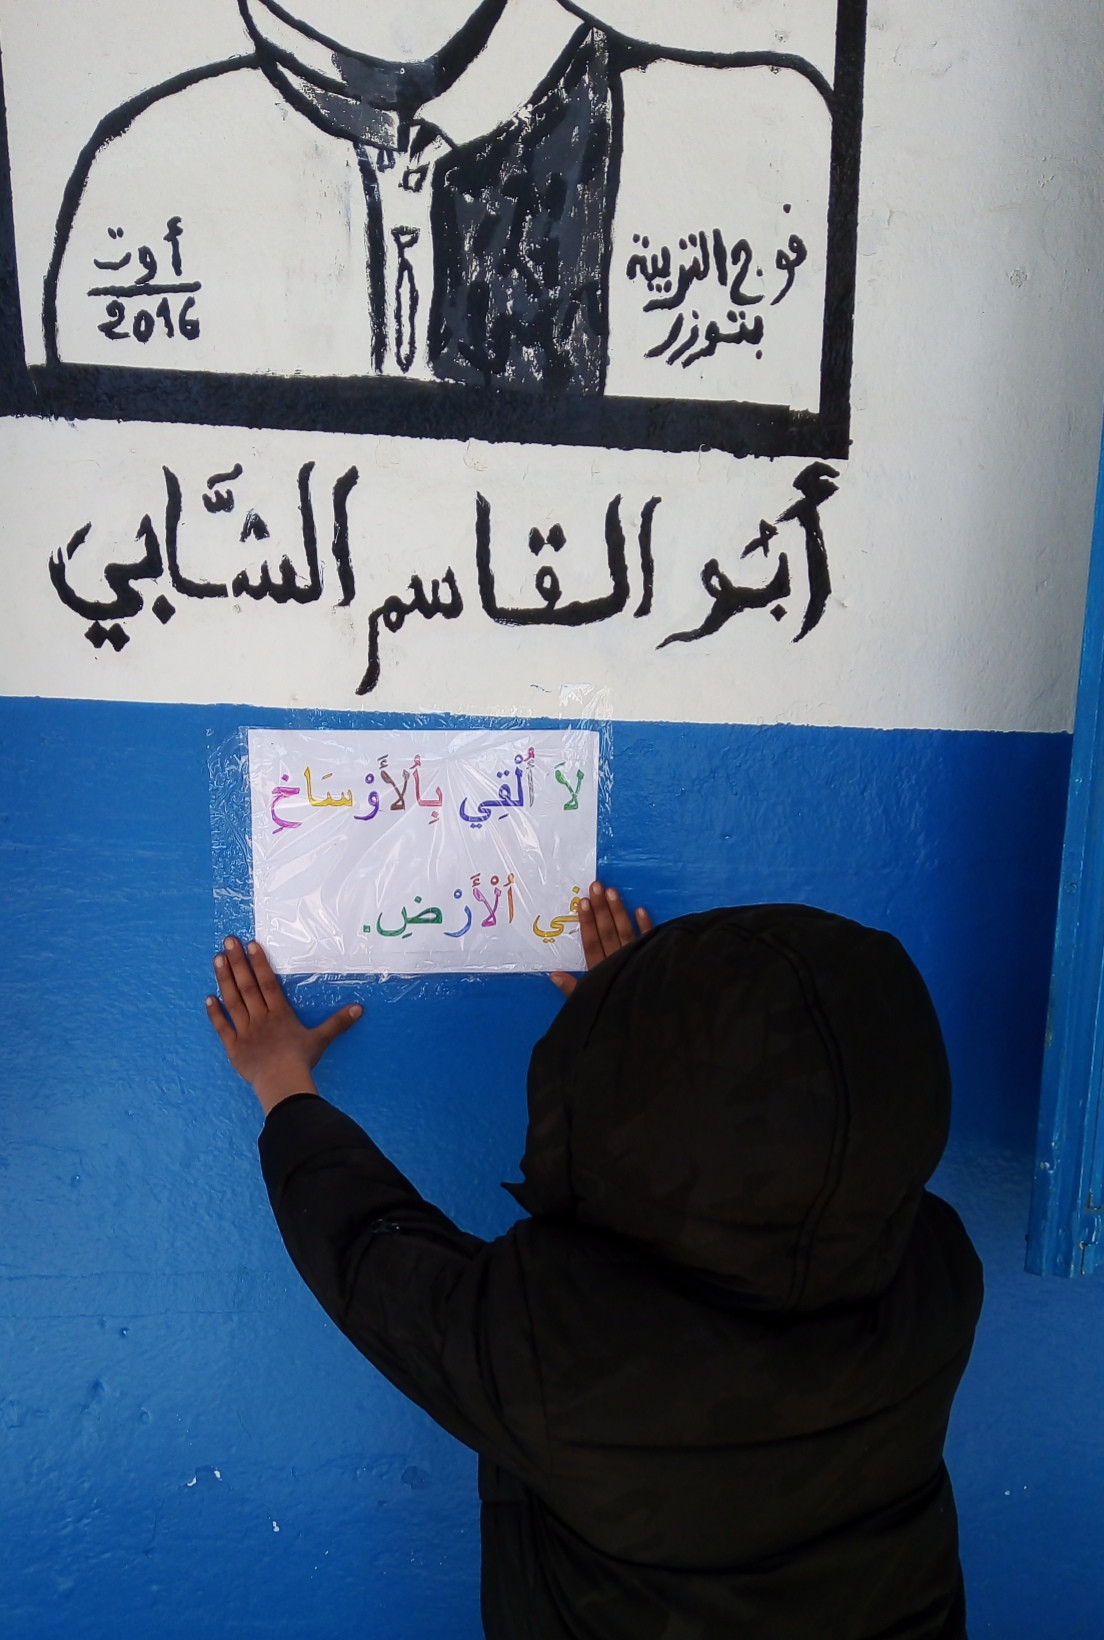 فوج التربية
بتوزر
أوت
2016
أبُو القاسم الشَّابي
لاَ أُلْقِي بِاُلأَوْسَاخِ
فِي اُلْأَرْضِ.